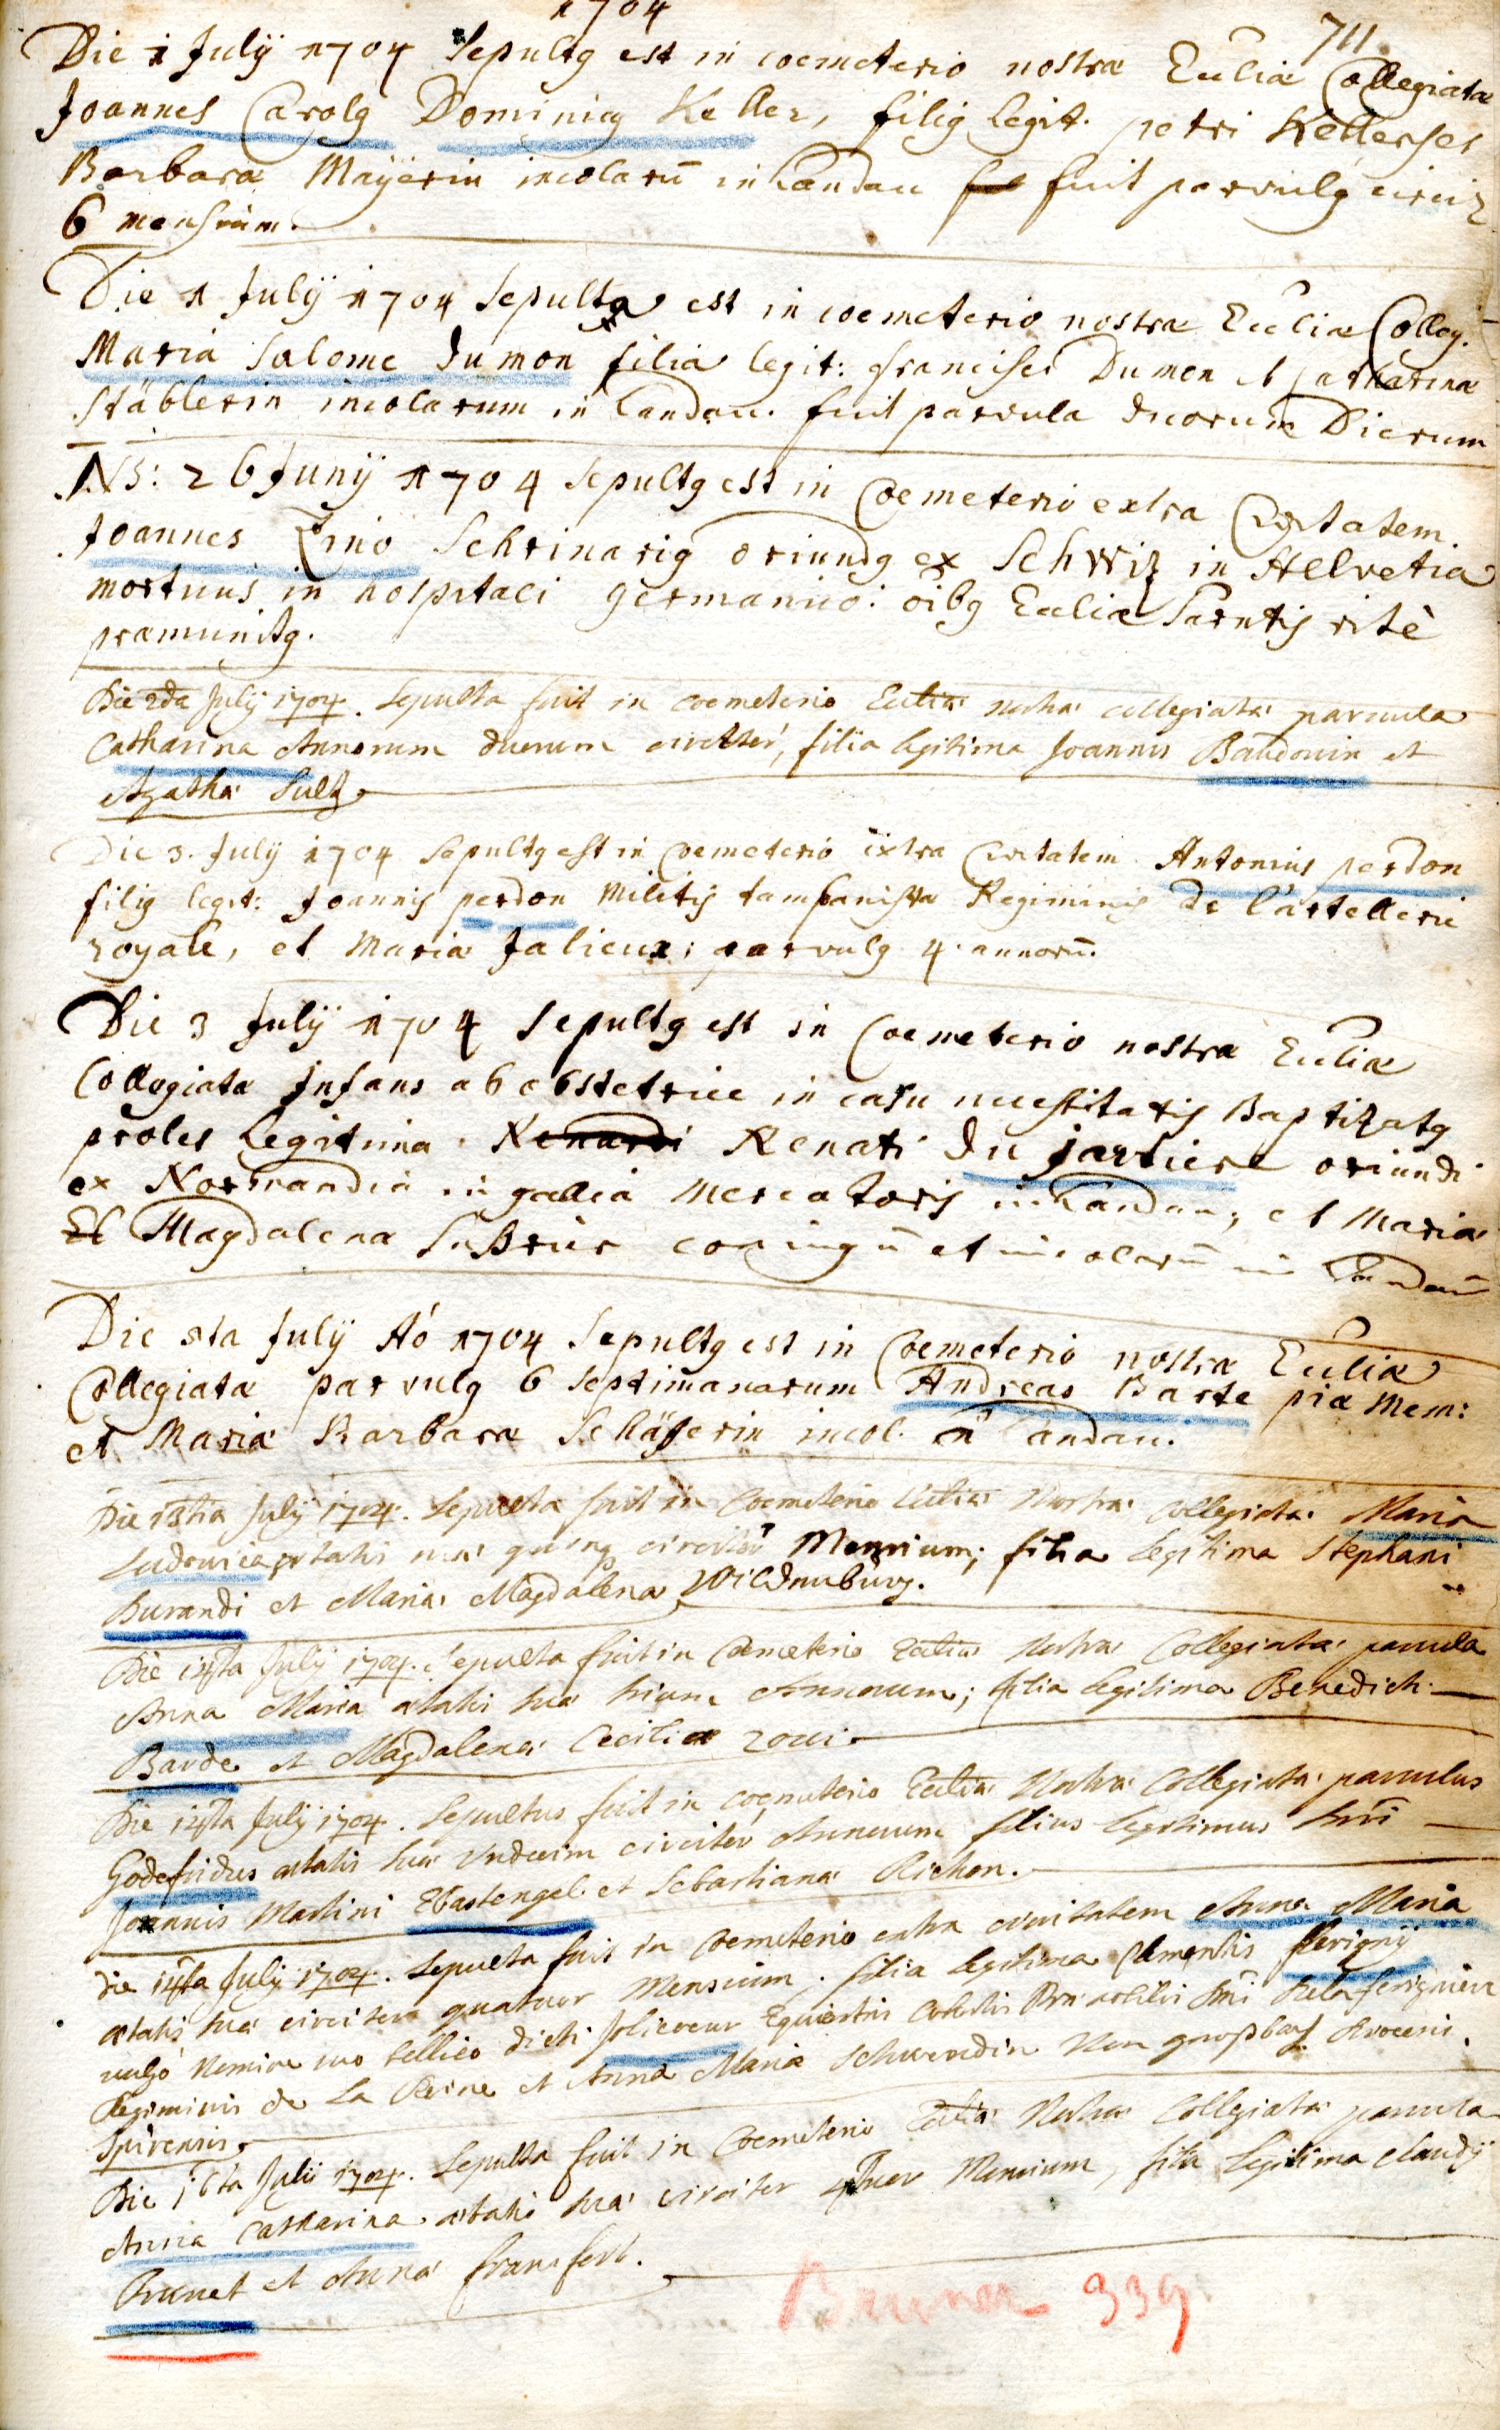 1704
711.
Die 1 Julÿ 1704 Sepultg est in coemeterio nostræ Eccliæ Collegiatæ
Joannes Carolg Dominicg Keller, filig legit. petri Kellers et
Barbara Maÿerin incolarū in Landau fuit parvulg circit
6 mensium.
Die 1 Julÿ 1704 Sepulta est in coemeterio nostræ Eccliæ Colleg.
Maria Salome Dumon filia legit: francisci Dumon et Catharina
Stäblerin incolarum in Landau. fuit parvula duorum Dierum
NB: 26 Junÿ 1704 Sepultg est in Coemeterio extra Civitatem.
Joannes Zino Schrinarig oriundg ex Schwiz in Helvetia
mortuus in hospitali germanico: oibg Eccliæ Sacrntis ritè
præmunitg.
Die 2da Julÿ 1704. Sepulta fuit in coemeterio Eccliæ nostræ collegiatæ parvula
Catharina Annorum duorum circiter, filia legitima Joannis Baudouin et
Agathæ Sultz.
Die 3. Julÿ 1704 Sepultg est in Coemeterio extra Civitatem Antonius perdon
filig legit: Joannis perdon Militis tampanista Regiminis de L'artellerie
royale, et Maria Jalieux; parvulg 4 annorū.
Die 3 Julÿ 1704 Sepultg est in Coemeterio nostræ Eccliæ
Collegiatæ Infans ab obstetrice in casu necessitatis Baptizatg
proles legitima Renardi Renati du jartiere oriundi
ex Normandia in gallia Mercatoris in Landau, et Maria
Et Magdalena SuBrier coniugū et incolarū in Landau
Die 8ta Julÿ Aó 1704 Sepultg est in Coemeterio nostræ Eccliæ
Collegiatæ parvulg 6 Septimanarum Andreas Barte piæ Mem:
et Maria Barbara Schäferin incol. in Landau.
Die 13tia Julÿ 1704. Sepulta fuit in Coemeterio Eccliæ Nostræ Collegiatæ Maria
Ludovica ætatis suæ quinq circiter Mensium; filia legitima Stephani
Burandi et Mariæ Magdalena Wildnuburg.
Die 14ta Julÿ 1704. Sepulta fuit in Coemeterio Eccliæ Nostræ Collegiatæ parvula
Anna Maria ætatis suæ trium Annorum; filia legitima Benedicti
Barde et Magdalena Cecilia zoui.
Die 14ta Julÿ 1704. Sepultus fuit in coemeterio Eccliæ Nostræ Collegiatæ parvulus
Godefridus ætatis suæ Undecim circiter Annorum filius legitimus
Joannis Martini Ebastengel et Sebastiana Richon.
Die 14ta Julÿ 1704. Sepulta fuit in Coemeterio extra civitatem Anna Maria
ætatis suæ circiter quatuor Mensium. filia legitima Clementis
vulgó Nomine suo bellico dicti Jolicoeur Equestris
Regiminis de La Reine et Anna Maria Schwendin
Spirensis.
Die 16ta Julÿ 1704. Sepulta fuit in Coemeterio Eccliæ Nostræ Collegiatæ parvula
Anna Catharina ætatis suæ circiter 4tuor Mensium, filia legitima Claudÿ
Brunet et Annæ fransfort.
Brunon 339